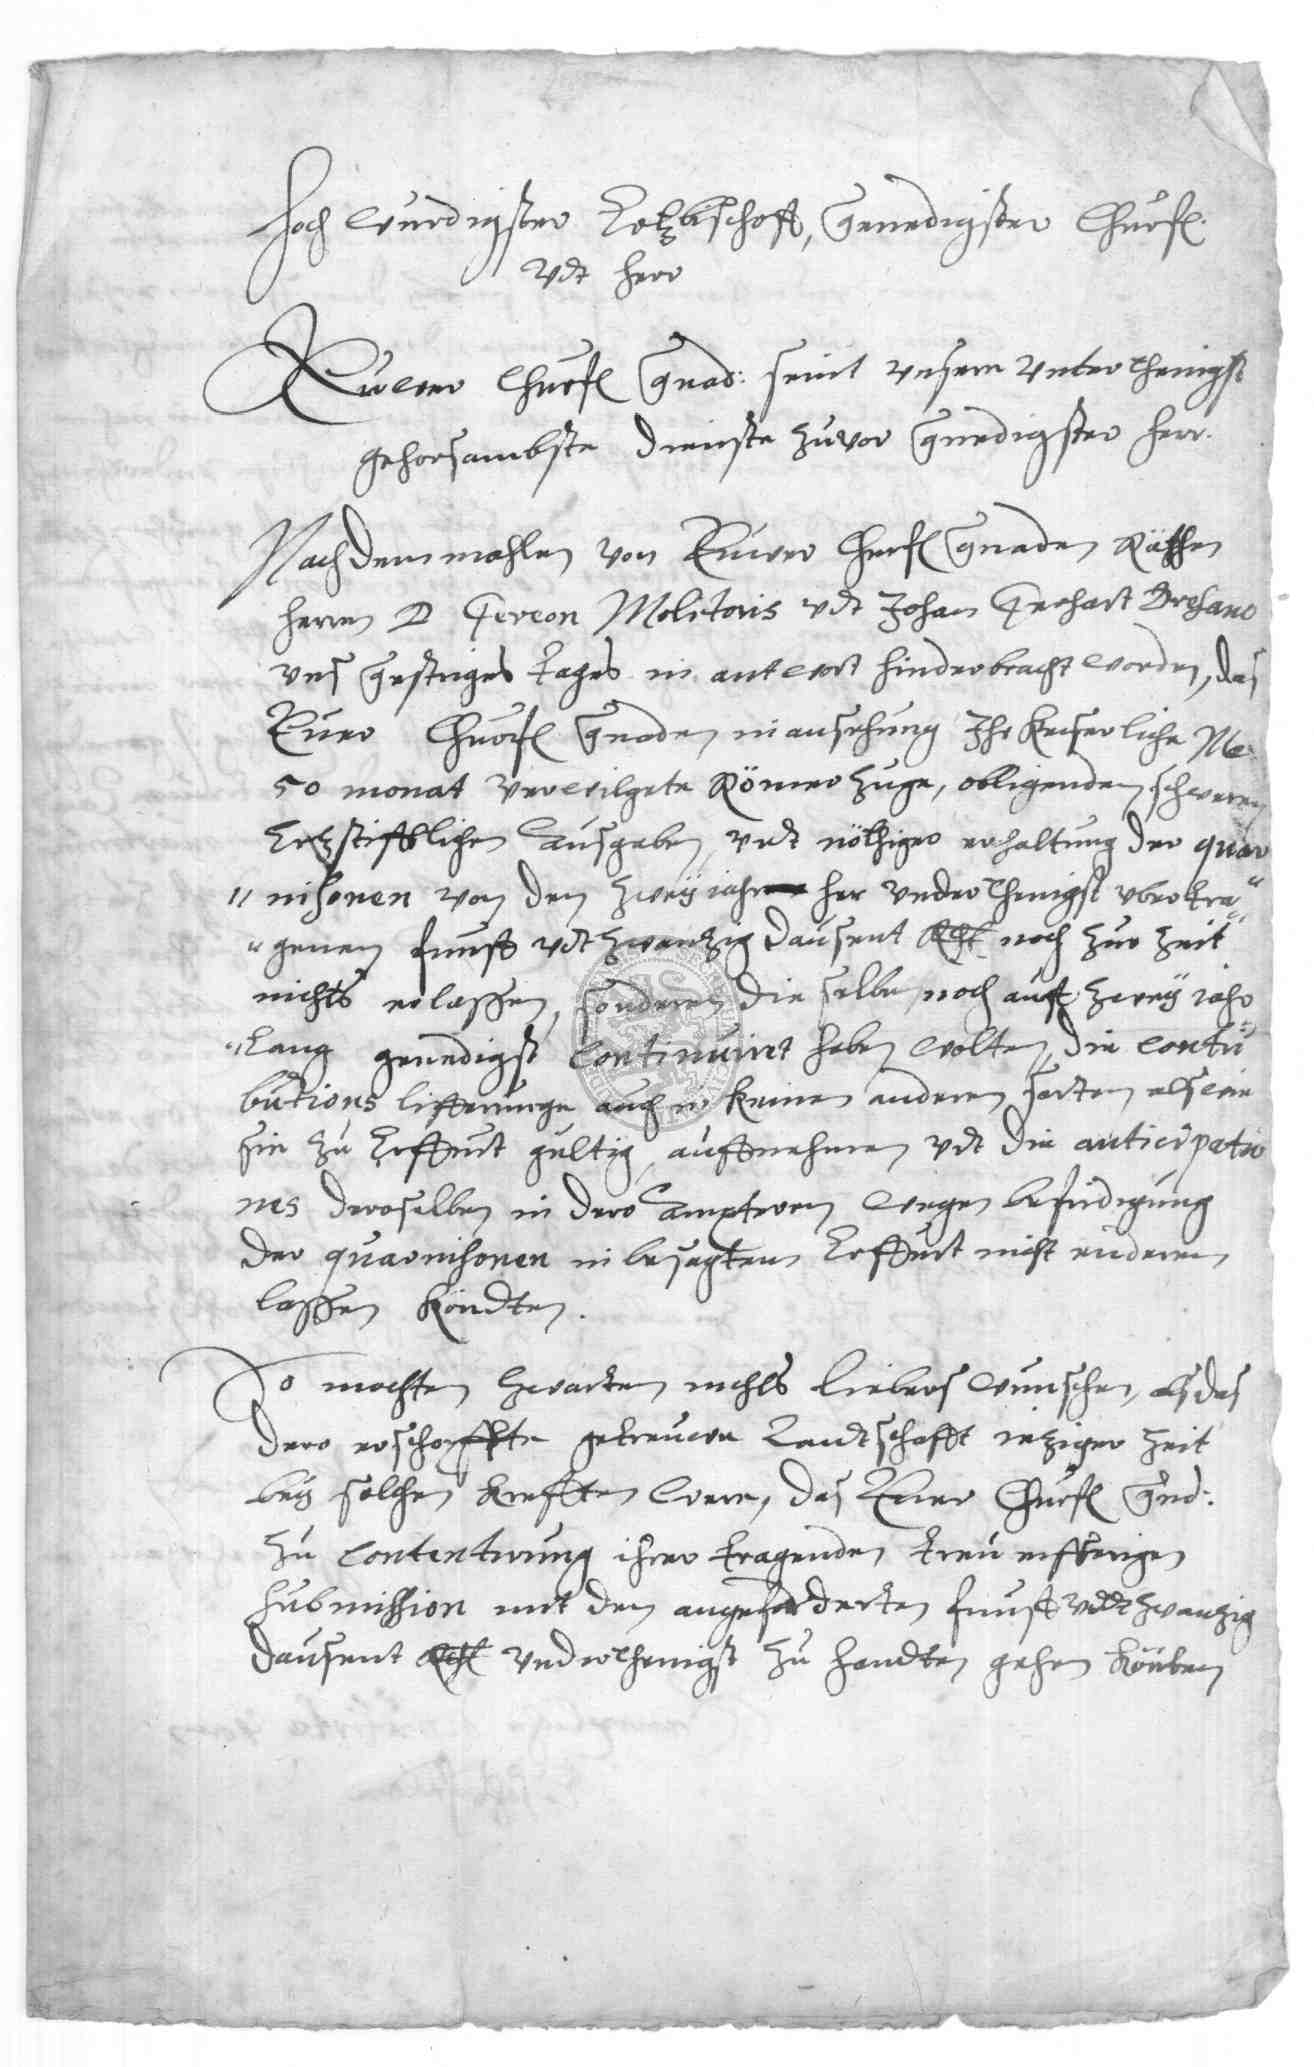 Hochwürdigster Ertzbischoff, Genedigster Churf.
vdt Herr
Euwer Churfl Gnad: seint vnsere vnterthenigst
gehorsambste dienste zuvor Gnedigster Herr.
Nachdemmahlen von Euwer Churfl Gnaden Räthen
Herren D Gereon Molitoris vdt Johan Gerhart
vns Gestriges tages in antwort hinderbracht worden, das
Euer Churfl Gnaden in ansehung Ihr Keiserliche Me:
50 monat verwilgete Römer zuge, obligenden schweren
Ertzstifftlichen Ausgaben, vndt nöthiger erhaltung der quar
nisonen von den zweÿ jahren her vnderthenigst vbertra
genen funff vdt zwantzig dausent Rth noch zur zeit
nichts erlassen, sonderen die selbe noch auff zweÿ jahr
Lang genedigst Continuirt haben wolten, die Contri
butions lifferunge auch in keinen anderen sorten als wie
sie zu Erffurt gultig, auffnehmen vdt die anticipatio
nes deroselben in dero Ampteren wegen befridigung
der quarnisonen in besagtem Erffurt nicht enderen
lassen köndten.
So mochten zwarten nichts liebers wunschen, als das
dero erschopffte getreuwe Landtschafft jetziger zeit
beÿ solchen krefften were, das Euer Churfl Gnd:
zu Contentirung ihrer tragenden treu eifferigen
submission mit den angeforderten funff vndt zwantzig
dausent Rth vnderthenigst zu handten gehen könten